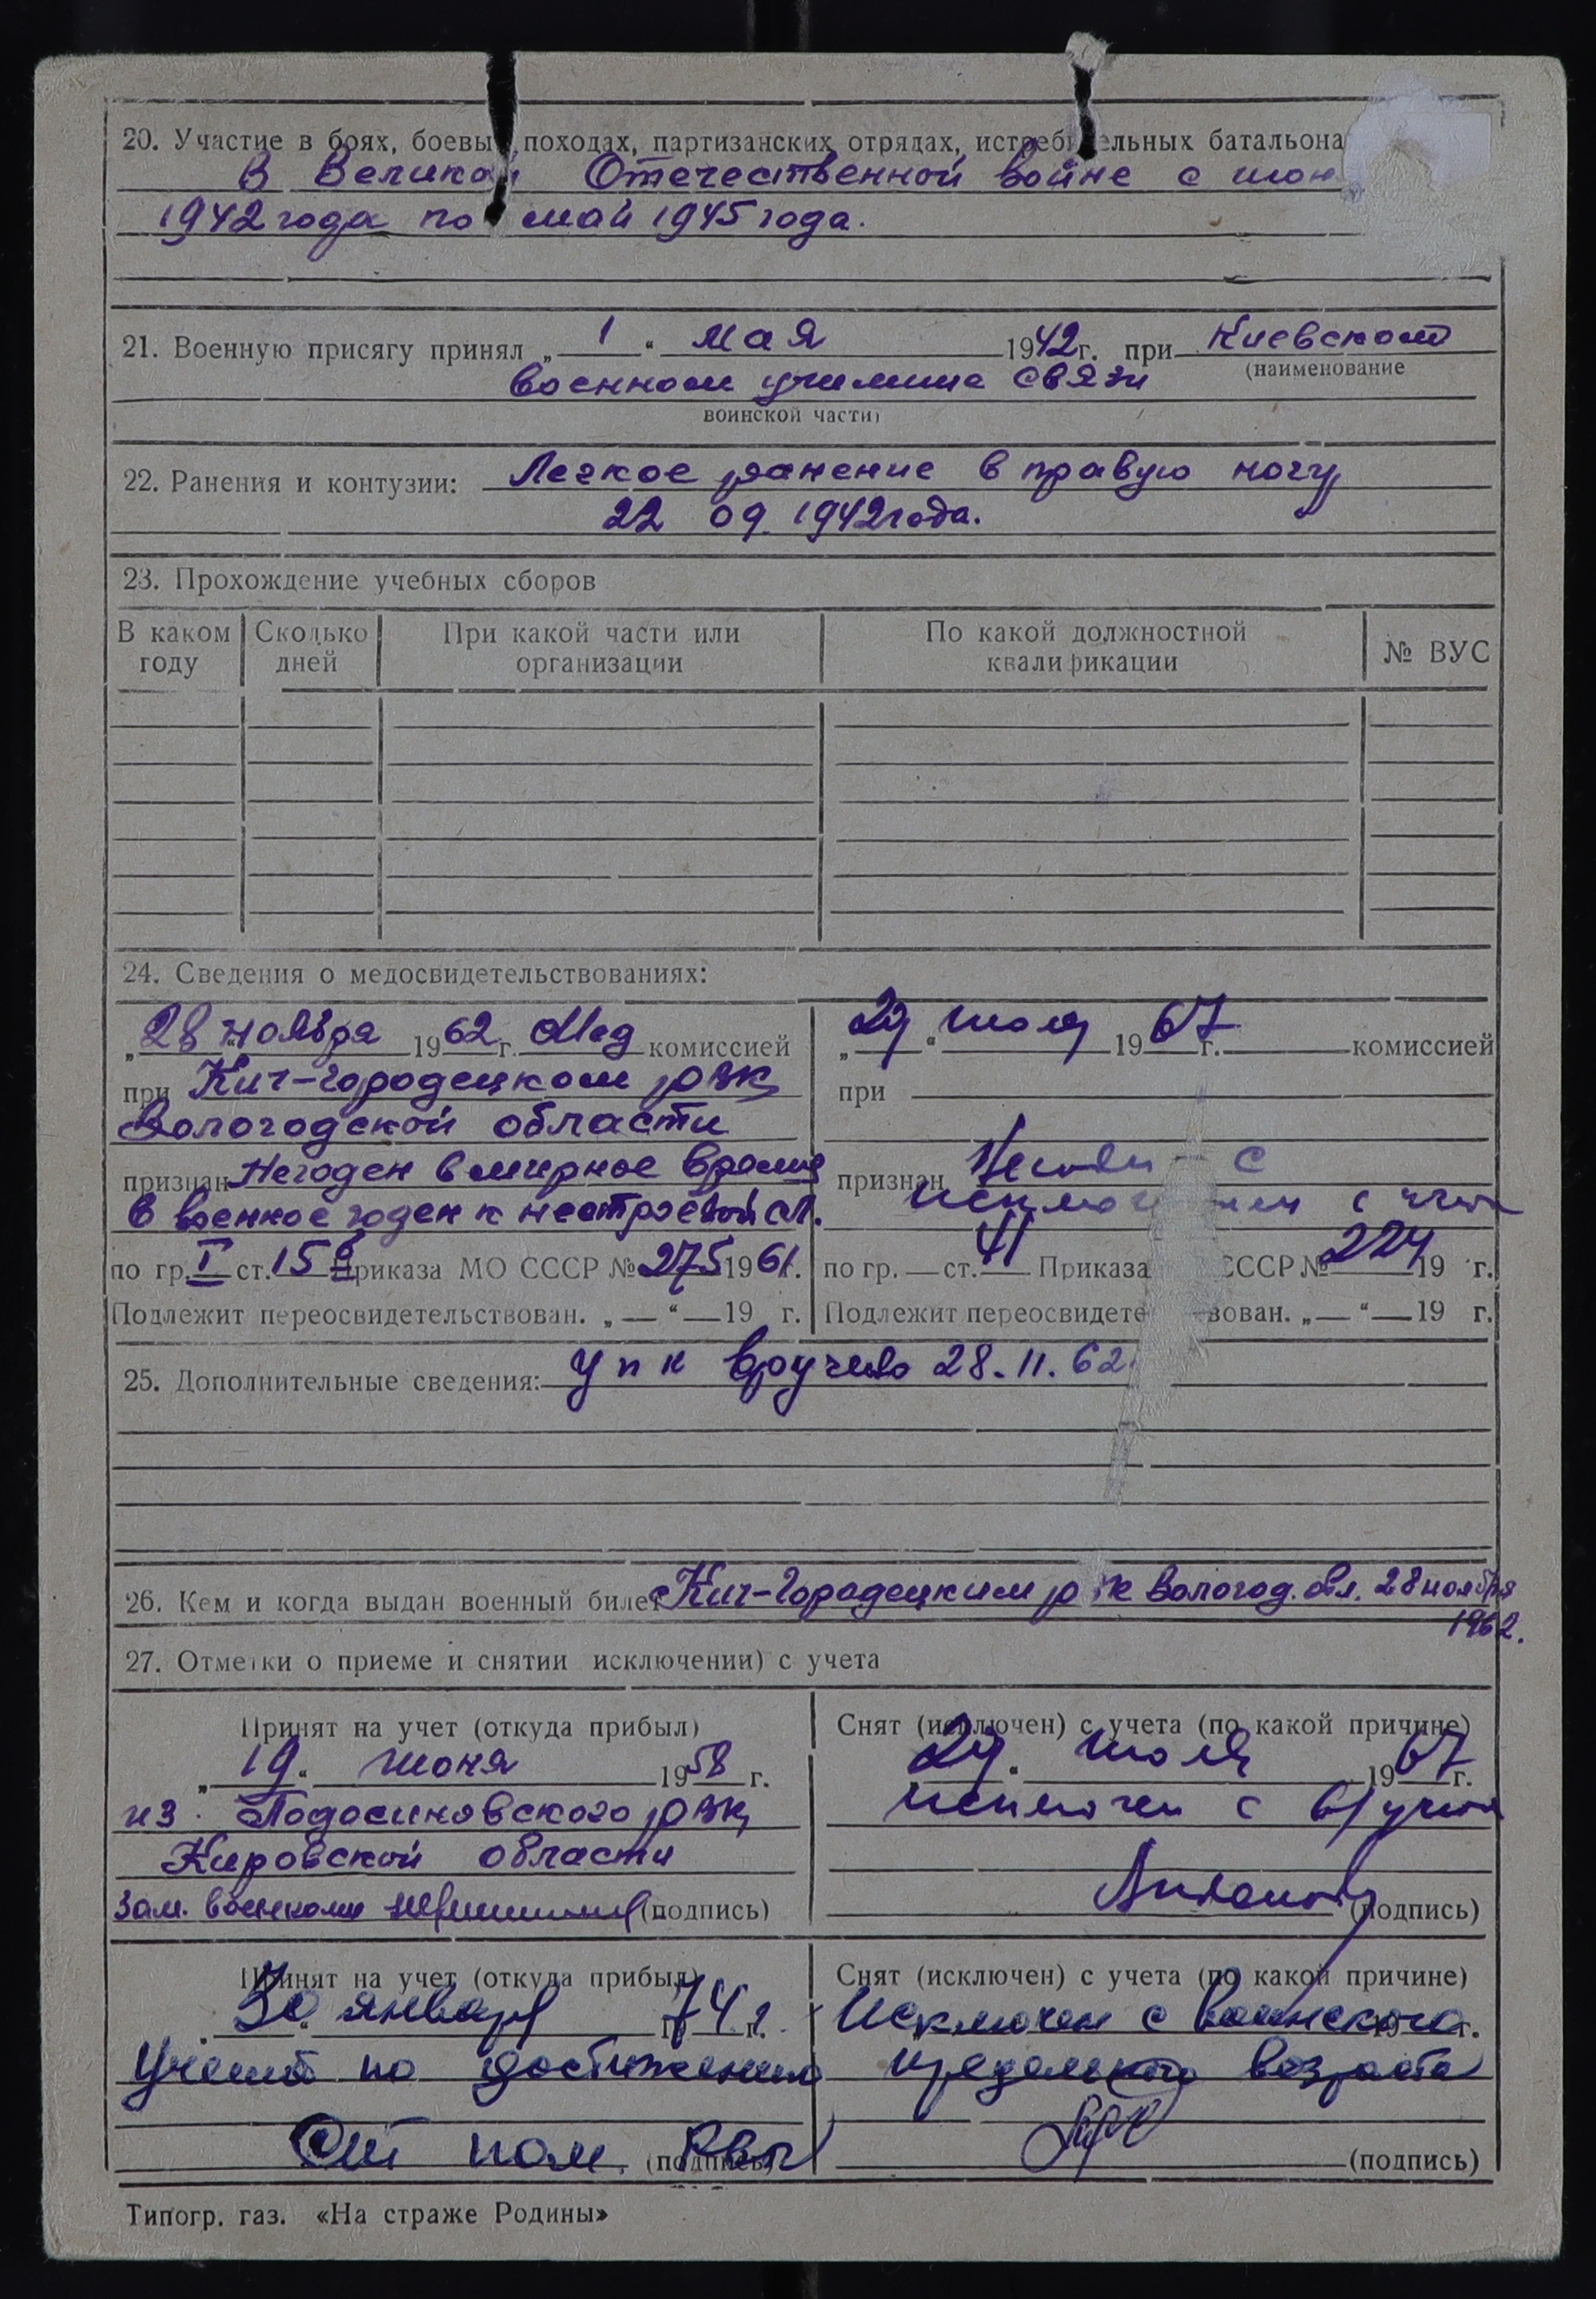 20. Участие в боях, боевы походах, партизанских отрядах, истреб ельных батальона
В Великой Отечественной войне с июн
1942 года по май 1945 года.
21. Военную присягу принял „ 1 “ мая 1942 г. при Киевском
(наименование
военном училище связи
воинской части)
22. Ранения и контузии: Легкое ранение в правую ногу
22 09. 1942 года.
23. Прохождение учебных сборов
В каком году
Сколько дней
При какой части или организации
По какой должностной квалификации
№ ВУС
24. Сведения о медосвидетельствованиях:
„ 28 “ ноября 1962 г. Мед комиссией
при Кич-Городецком РВК
Вологодской области
признан Негоден в мирное время
в военное годен к нестроевой сл.
по гр. I ст. 15 б Приказа МО СССР № 275 1961 г.
Подлежит переосвидетельствован. „ — “ — 19 г.
„ 29 “ июля 1967 г. комиссией
при
признан с
исключен с
по гр. — ст. 41 Приказа СССР № 224 19 г.
Подлежит переосвидете вован. „ — “ — 19 г.
25. Дополнительные сведения: упк вручено 28.11.62
26. Кем и когда выдан военный билет Кич-Городецким Р К Вологод. обл. 28 ноября
1962.
27. Отметки о приеме и снятии исключении) с учета
Принят на учет (откуда прибыл)
„ 19 “ июня 1958 г.
из Подосиновского РВК,
Кировской области
Зам. военкома (подпись)
Снят (исключен) с учета (по какой причине)
29 “ июля 1967 г.
исключен с в/учета
(подпись)
Принят на учет (откуда прибыл)
Снят (исключен) с учета (по какой причине)
30 “ января 74 г. Исключен с воинского г.
учета по достижению предельного возраста
пом. (подпись)
(подпись)
Типогр. газ. «На страже Родины»